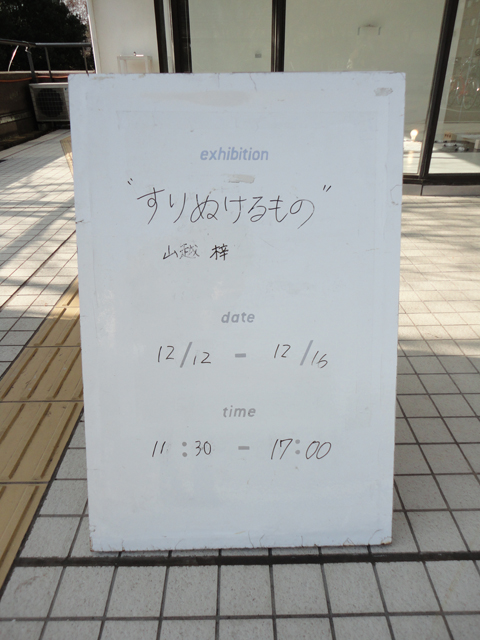 exhibition
"すりぬけるもの"
山越 梓
date
12/12 - 12/16
time
11:30 - 17:00